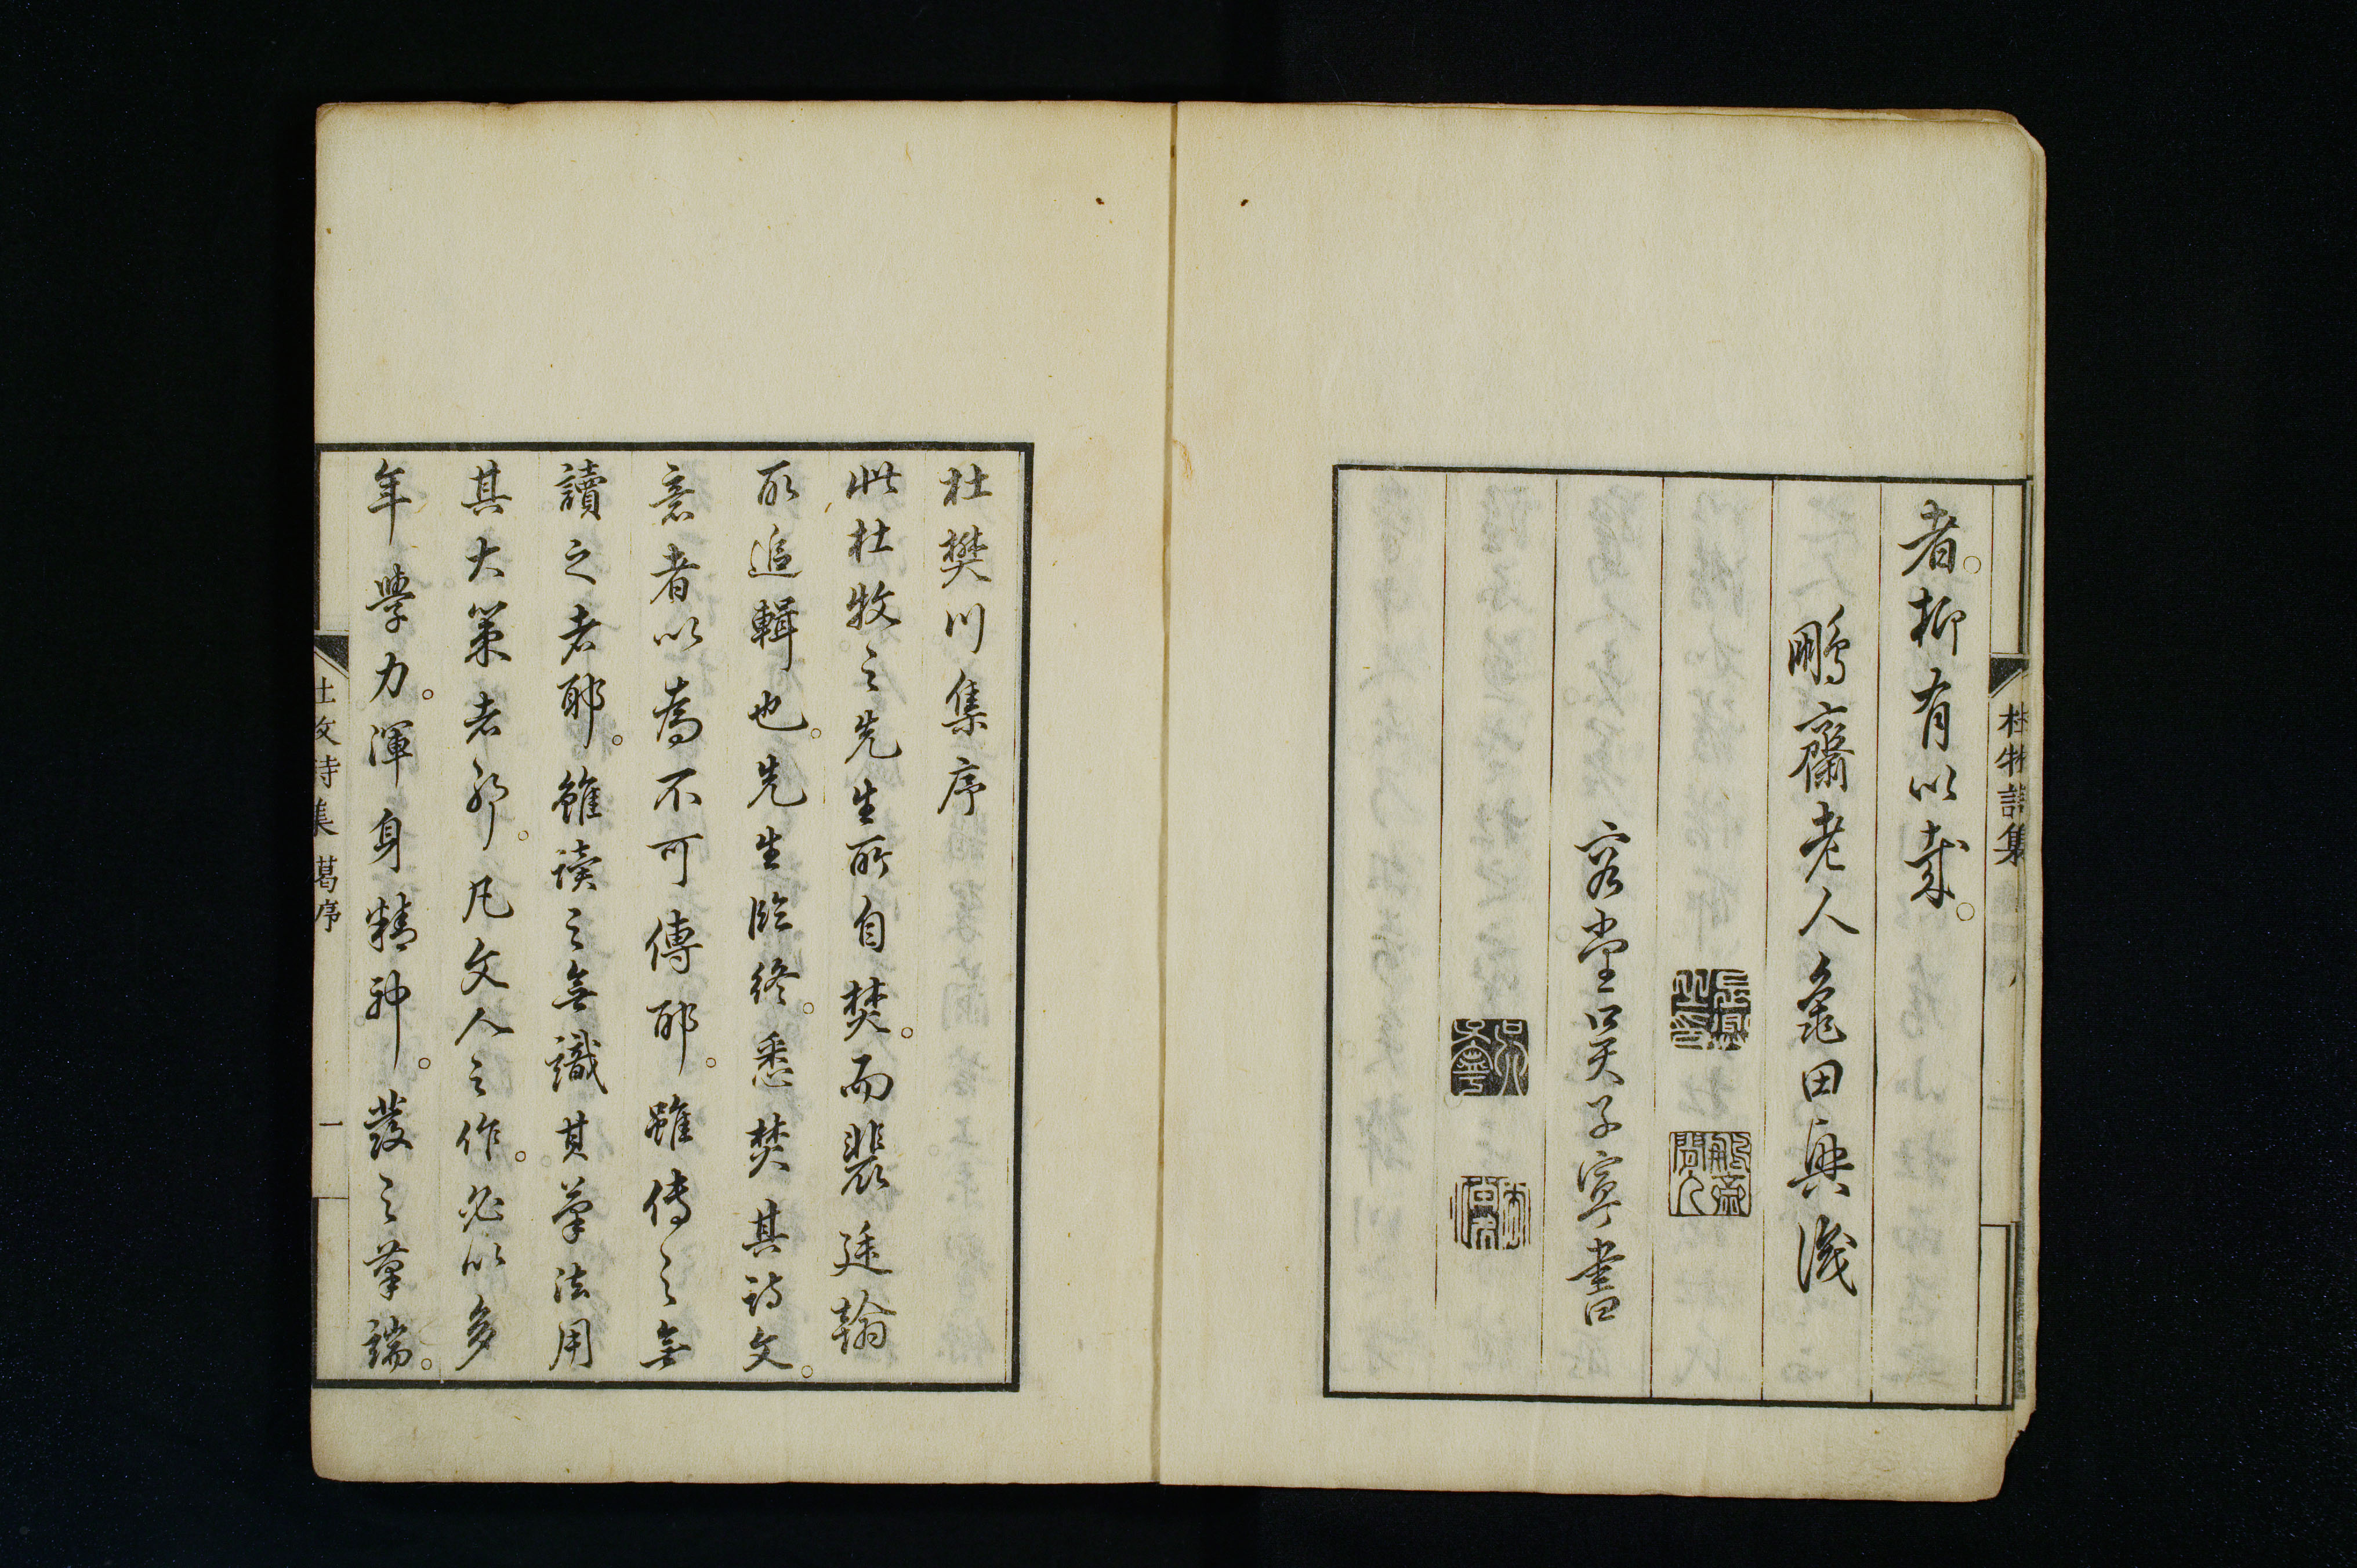 杜牧詩集
者。抑有以哉。
鵬齋老人龜田興識
容堂吳子寧書
長興之印
鵬齋間人
杜樊川集序
此杜牧之先生所自焚。而裴延翰
所追輯也。先生臨終。悉焚其詩文。
意者以為不可傳耶。雖傳之無
讀之者耶。雖讀之無識其筆法用
其大策者耶。凡文人之作。必以多
年學力。渾身精神。發之筆端。
杜牧詩集 葛序 一